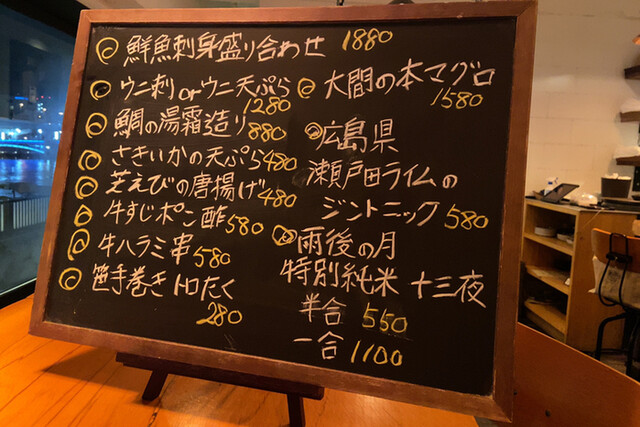 鮮魚刺身盛り合わせ 1880
ウニ刺 or ウニ天ぷら
1280
鯛の湯霜造り 880
さきいかの天ぷら 480
芝えびの唐揚げ 480
牛すじポン酢 580
牛ハラミ串 580
笹手巻きトロたく
280
大間の本マグロ
1580
広島県
瀬戸田ライムの
ジントニック 580
雨後の月
特別純米 十三夜
半合 550
一合 1100